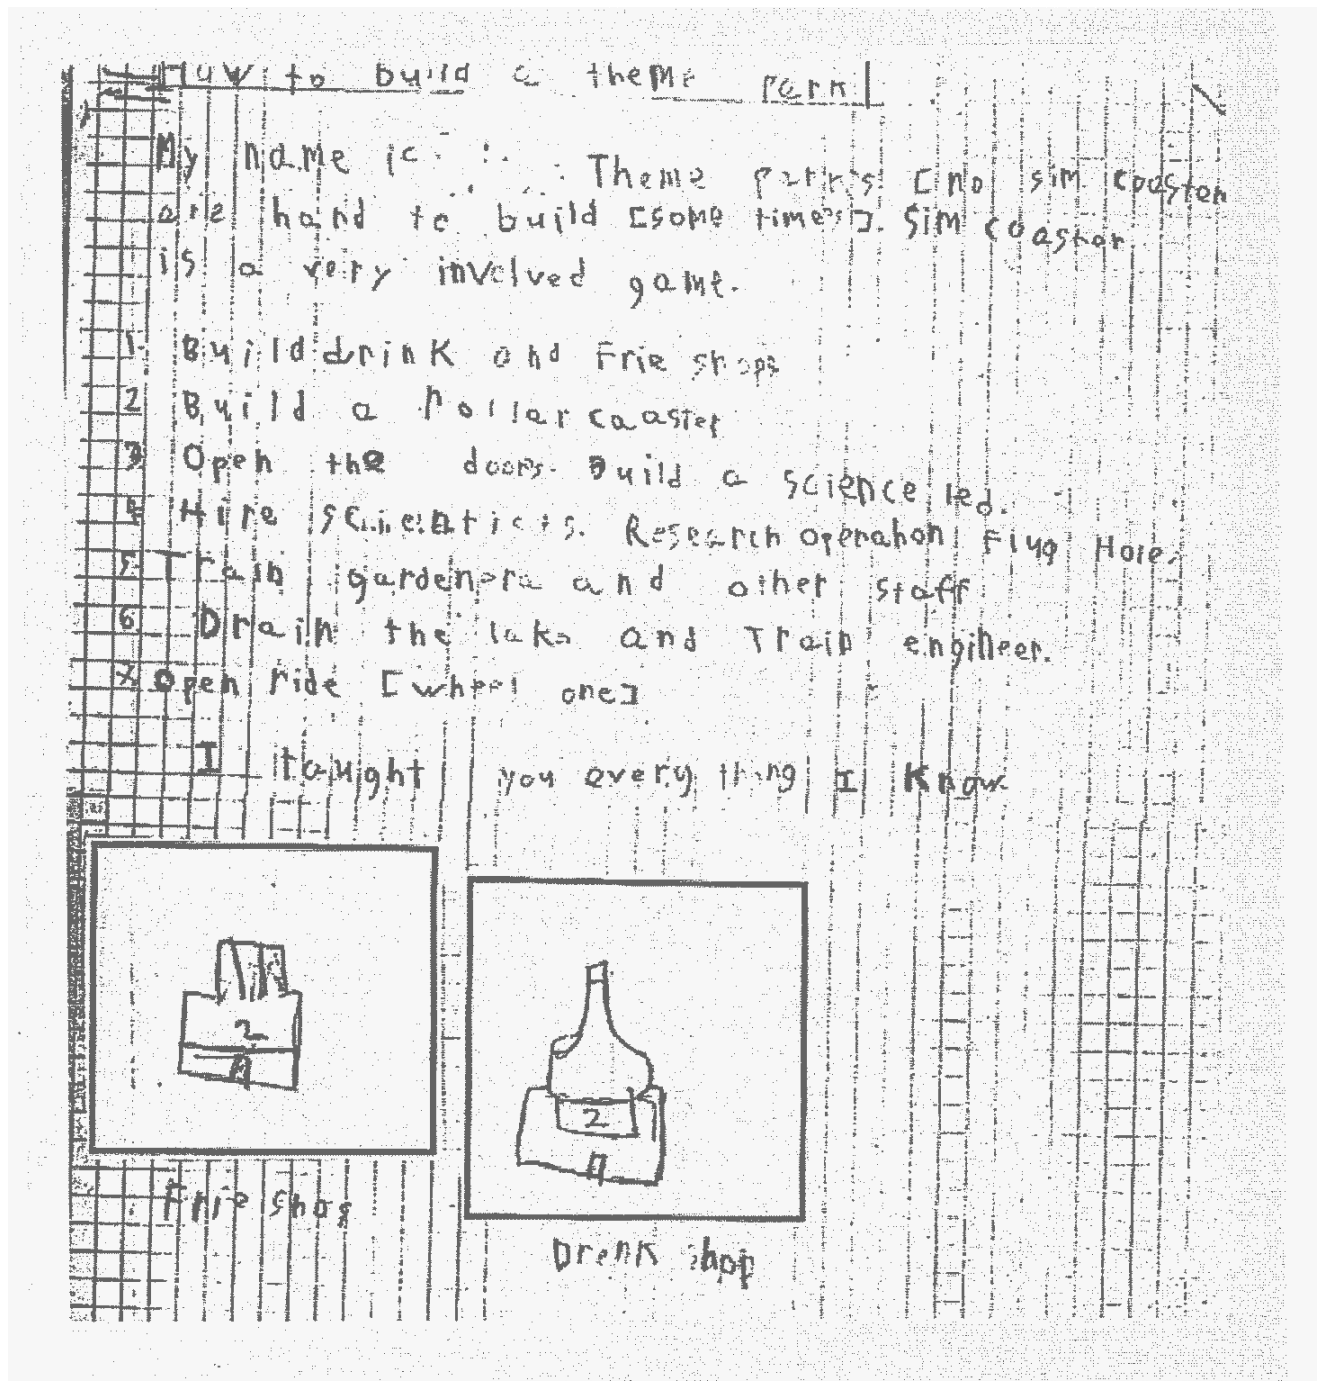 How to build a theme park
My name is Theme parks [no sim coaster
are hard to build [some times]. Sim coaster
is a very involved game.
1. Build drink and Frie shops
2 Build a rollar coaster
3 Open the doors. Build a science led.
4 Hire scientists. Research operahon Flug Hole.
5. Train gardenera and other staff
6. Drain the lake and Train engineer.
7 Open ride [wheel one]
I taught you every thing I know
2
2
Frie shop
Drenk shop